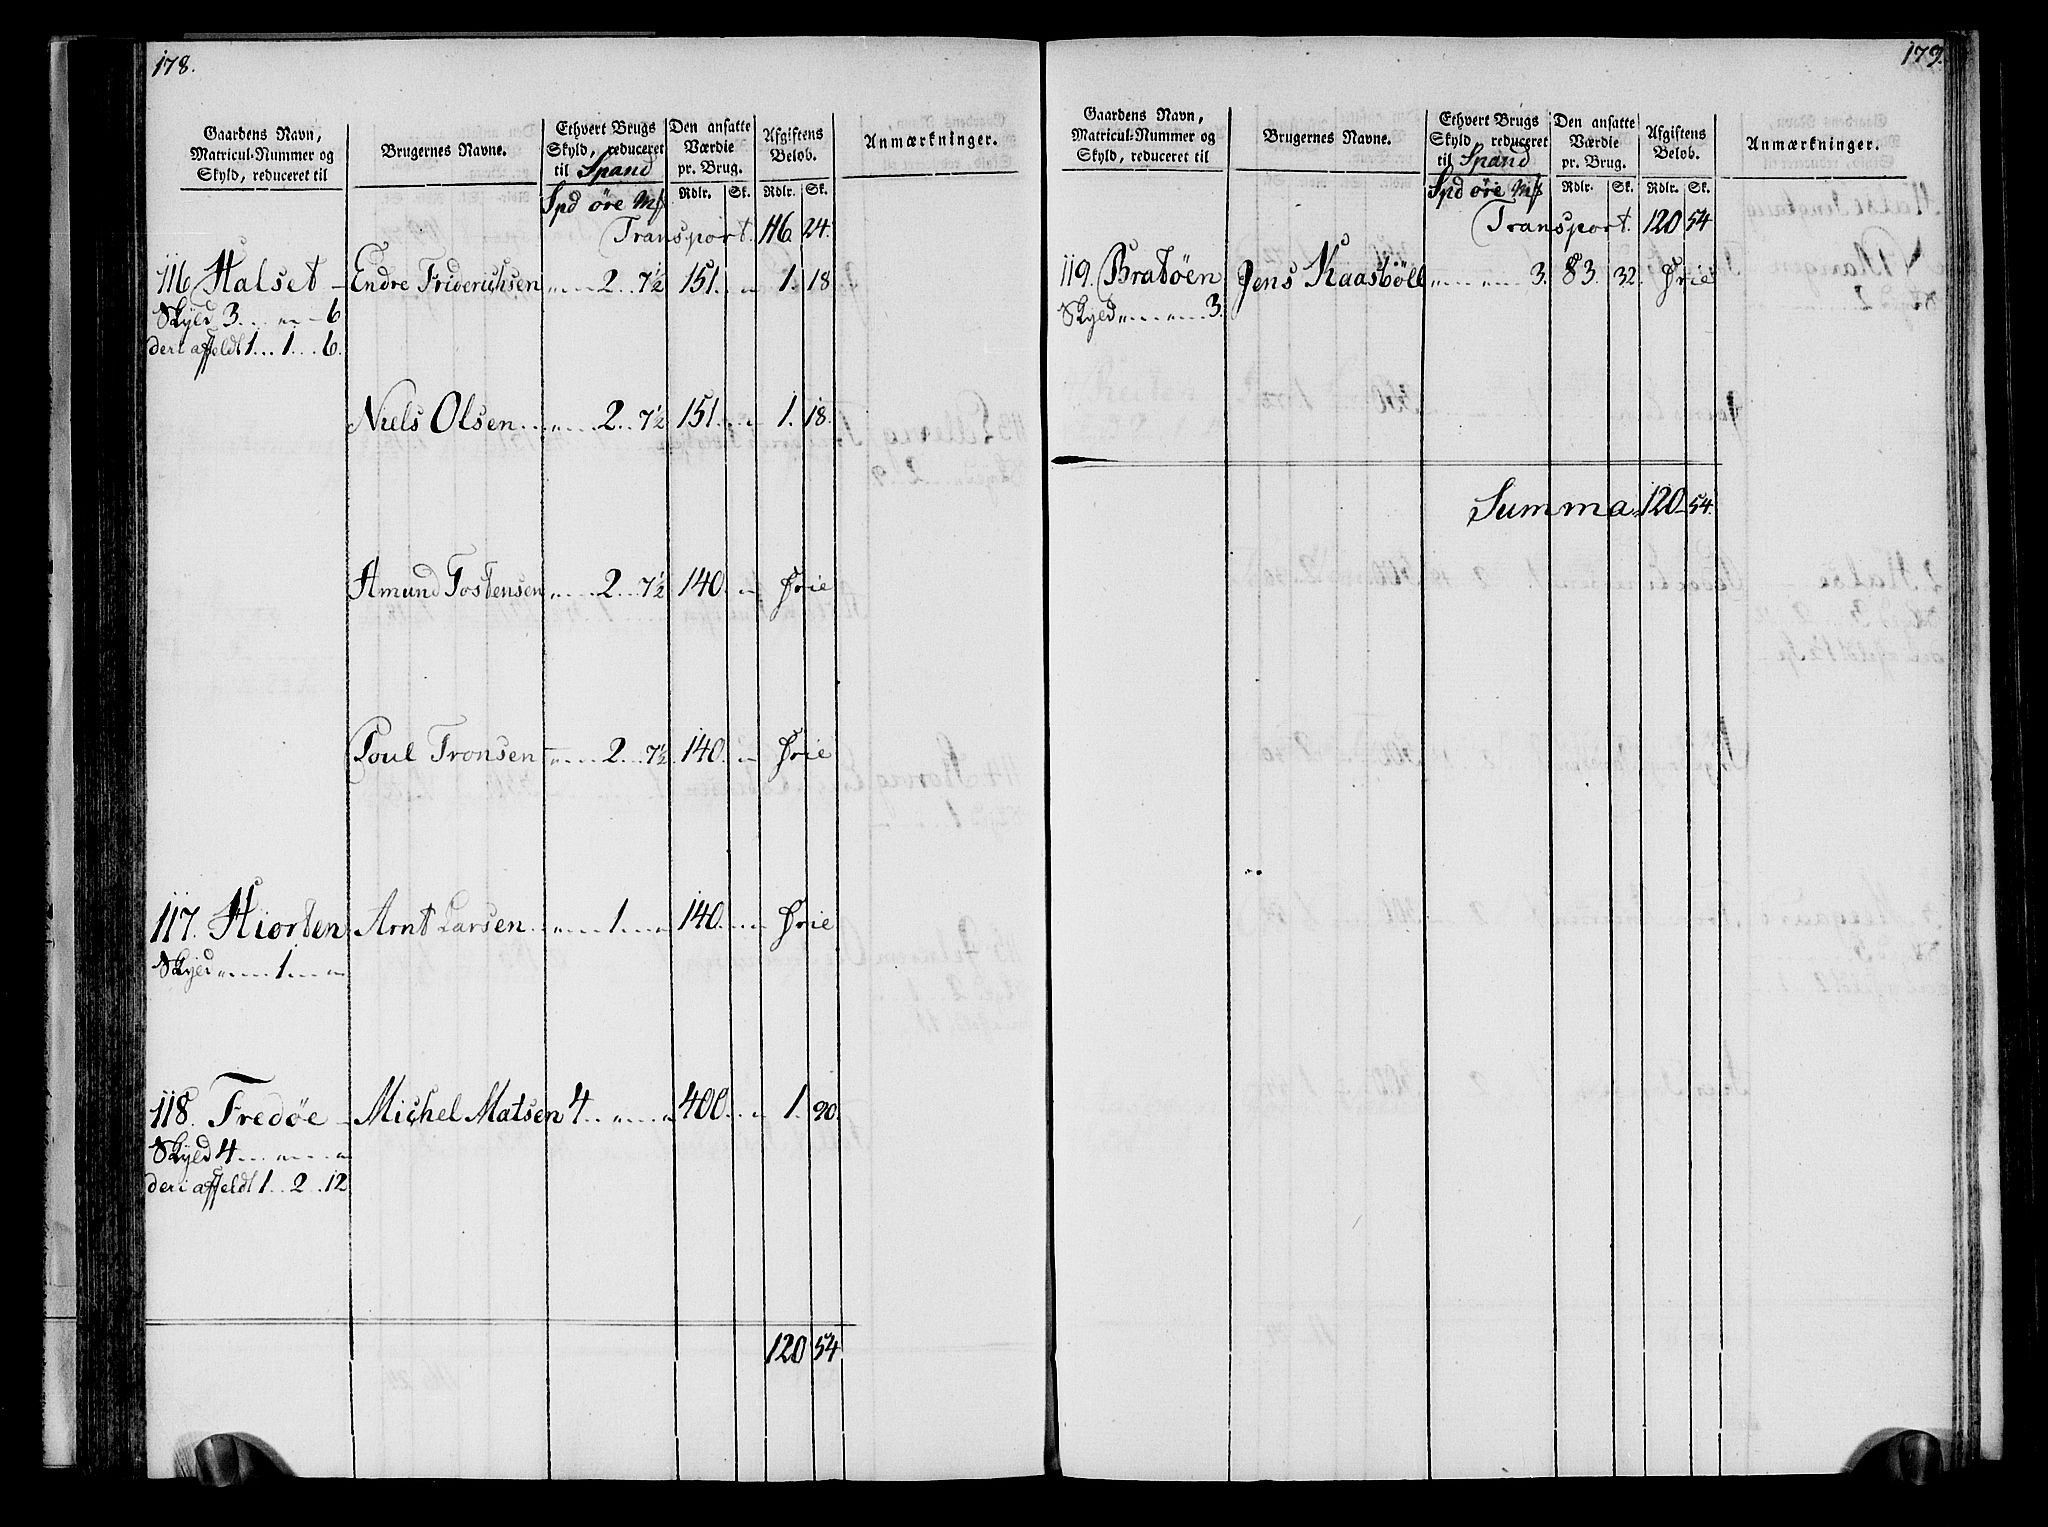 178.
Gaardens Navn, Matricul-Nummer og Skyld, reduceret til
Brugernes Navne.
Ethvert Brugs Skyld, reduceret til Spand
Den ansatte Værdie pr. Brug.
Afgiftens Beløb.
Anmærkninger.
Spd öre Mk Rdlr. Sk. Rdlr. Sk.
Transport. 116. 24.
116 Halset - Endre Friderichsen „ .. 2 .. 7½ 151 .. „ 1. 18
Skyld 3 .. „ .. 6
deri affeldt 1 .. 1 .. 6.
Niels Olsen .. „ .. 2 .. 7½ 151 .. „ 1. 18.
Amund Tostensen „ .. 2 .. 7½ 140 .. „ frie
Poul Tronsen „ .. 2 .. 7½ 140 .. „ frie
117. Hiorten Arnt Larsen .. „ .. 1 .. „ 140 .. „ frie
Skyld „ .. 1 .. „
118. Fredöe - Michel Matsen 4 .. „ .. „ 400 .. „ 1. 90.
Skyld 4 .. „ .. „
deri affeldt 1 .. 2 .. 12
120 54
179.
Gaardens Navn, Matricul-Nummer og Skyld, reduceret til
Brugernes Navne.
Ethvert Brugs Skyld, reduceret til Spand
Den ansatte Værdie pr. Brug.
Afgiftens Beløb.
Anmærkninger.
Spd öre Mk Rdlr. Sk. Rdlr. Sk.
Transport. 120 54
119. Bratöen Jens Kaasböll „ .. „ .. 3. 83. 32. frie
Skyld „ .. „ .. 3.
Summa. 120 54.